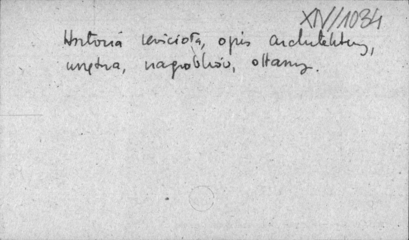 XIV/1034
Historia kościoła, opis architektury,
wnętrza, nagrobków, ołtarzy.